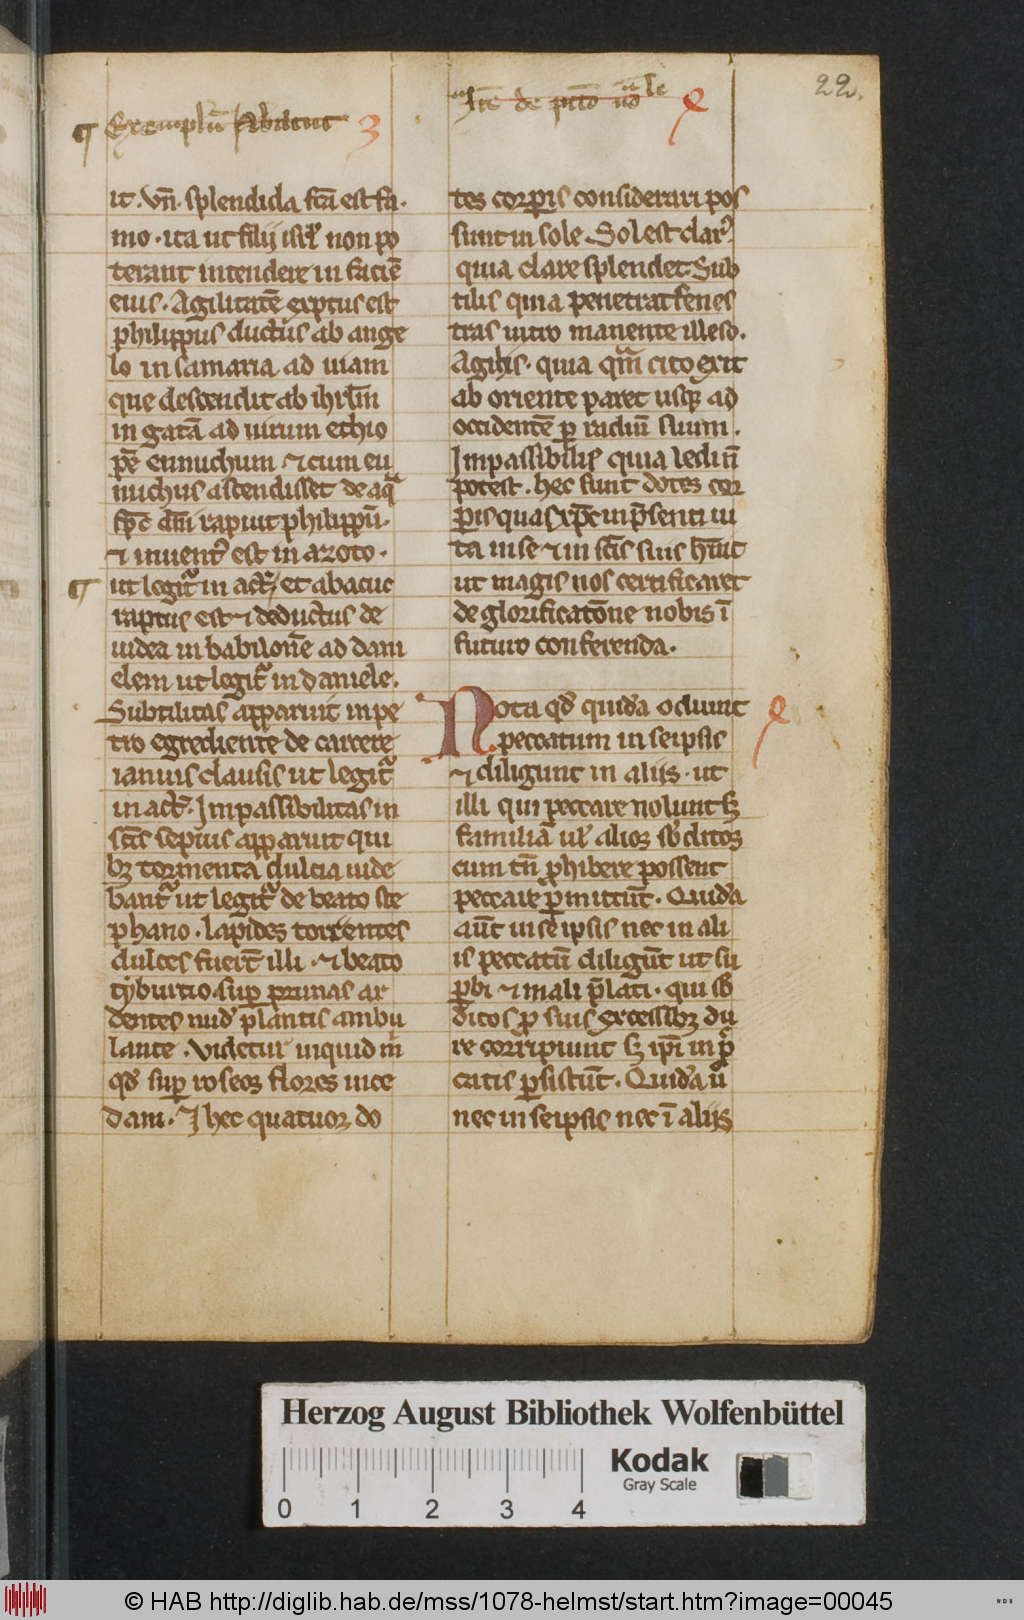 22.
¶ Exemplū Abacuc 3
it. vñ. splendida fc̄a est fa.
mo. ita ut filij isr̄l non po
terant intendere in faciē
eius. Agilitatē exptus est
philippus ductus ab ange
lo in samaria ad uiam
que descendit ab ihrl̄m
in gazā ad uirum ethio
pē eunuchum ⁊ cum eu
nuchus ascendisset de aqͣ
sp̄c dn̄i rapuit philippū.
⁊ inuent᾽ est in azoto.
¶ ut legit᷑ in act᷑. et abacuc
raptus est ⁊ deductus de
iudea in babilonē ad dani
elem ut legit᷑ in daniele.
Subtilitas apparuit in pe
tro egrediente de carcere
ianuis clausis ut legit᷑
in act᷑. Impassibilitas in
sc̄is sepius apparuit qui
bꝫ tormenta dulcia uide
bant᷑ ut legit᷑ de beato ste
phano. lapides torrentes
dulces fuerūt illi. ⁊ beato
tyburtio. suꝑ prunas ar
dentes nud᾽ plantis ambu
lante. Videtur inquid m̄
qd̄ suꝑ roseoꝝ flores ince
dam. ⁊ hec quatuoꝝ do
Itē de pctō
tes corꝑis considerari pos
sunt in sole. Sol est clar᾽.
quia clare splendet. Sub
tilis quia penetrat fenes
tras uitro manente illeso.
Agilis. quia qm̄ cito exit
ab oriente paret usqꝫ ad
occidentē ꝑ radiū suum.
Impassibilis quia ledi n̄
potest. hec sunt dotes cor
ꝑis quas xp̄c in p̄senti ui
ta in se ⁊ in sc̄is suis hūit
ut magis nos certificaret
de glorificatōne nobis ī
futuro conferenda.
Nota qd̄ quidā odiunt
peccatum in seipsis
⁊ diligunt in aliis. ut
illi qui peccare nolunt sꝫ
familiā ul᾽ alioꝝ sb᾽ditoꝝ
cum tn̄ ꝓhibere possent
peccare ꝑmittūt. Quidā
aūt in seipsis nec in ali
is peccatū diligūt ut su
ꝑbi ⁊ mali p̄lati. qui sb᾽
ditos ꝓ suis excessibꝫ du
re corripiunt sꝫ ip̄i in pͨ
catis ꝑsistūt. Quidā u᾽
nec in seipsis nec ī aliis
Herzog August Bibliothek Wolfenbüttel
Kodak
Gray Scale
0 1 2 3 4
© HAB http://diglib.hab.de/mss/1078-helmst/start.htm?image=00045